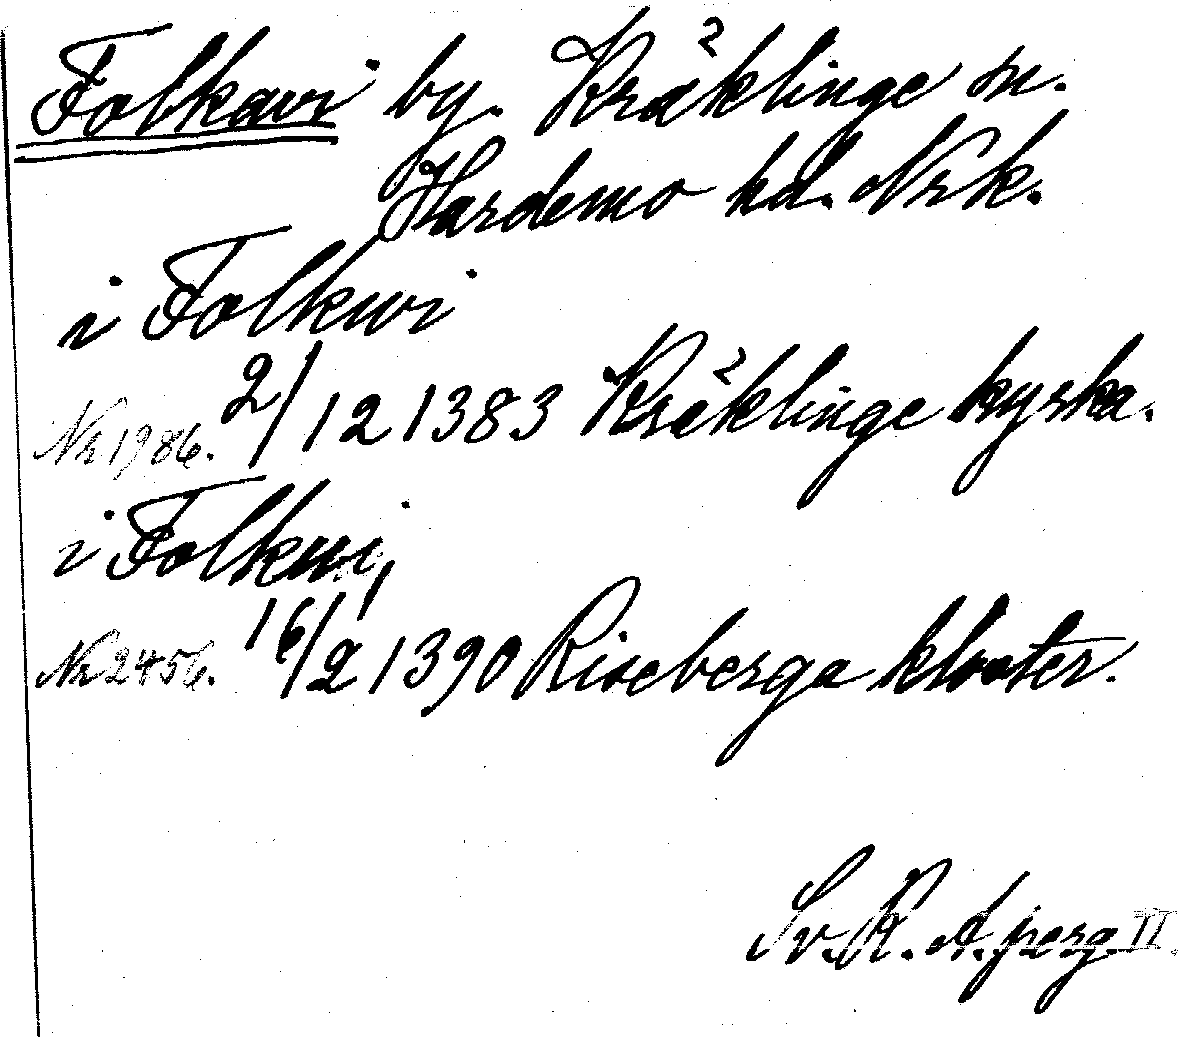 Folkavi by. Kräklinge sn.
Hardemo hd. Nrk.
i Folkuvi
Nr 1986. 2/12 1383 Kräklinge kyrka.
i Folkuvi,
Nr 2456. 16/2 1390 Riseberga kloster.
Sv. R. A. perg. II.